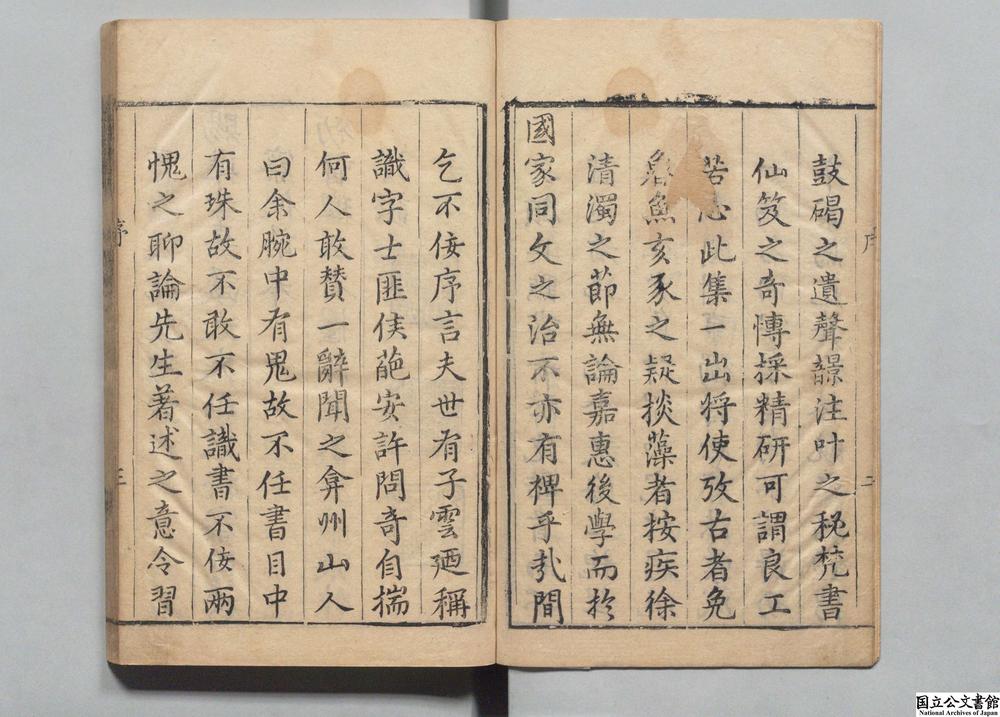 鼓碣之遺聲韻注叶之秘梵書
仙笈之奇慱採精研可謂良工
苦心此集一出将使攷古者免
魯魚亥豕之疑掞藻者按疾徐
清濁之莭無論嘉惠後學而於
國家同文之治不亦有裨乎䢖間
序
二
乞不佞序言夫世有子雲廼稱
識字士匪侯葩安許問奇自揣
何人敢賛一辭聞之弇州山人
曰余腕中有鬼故不任書目中
有珠故不敢不任識書不佞兩
愧之聊論先生著述之意令習
序
三
国立公文書館
National Archives of Japan